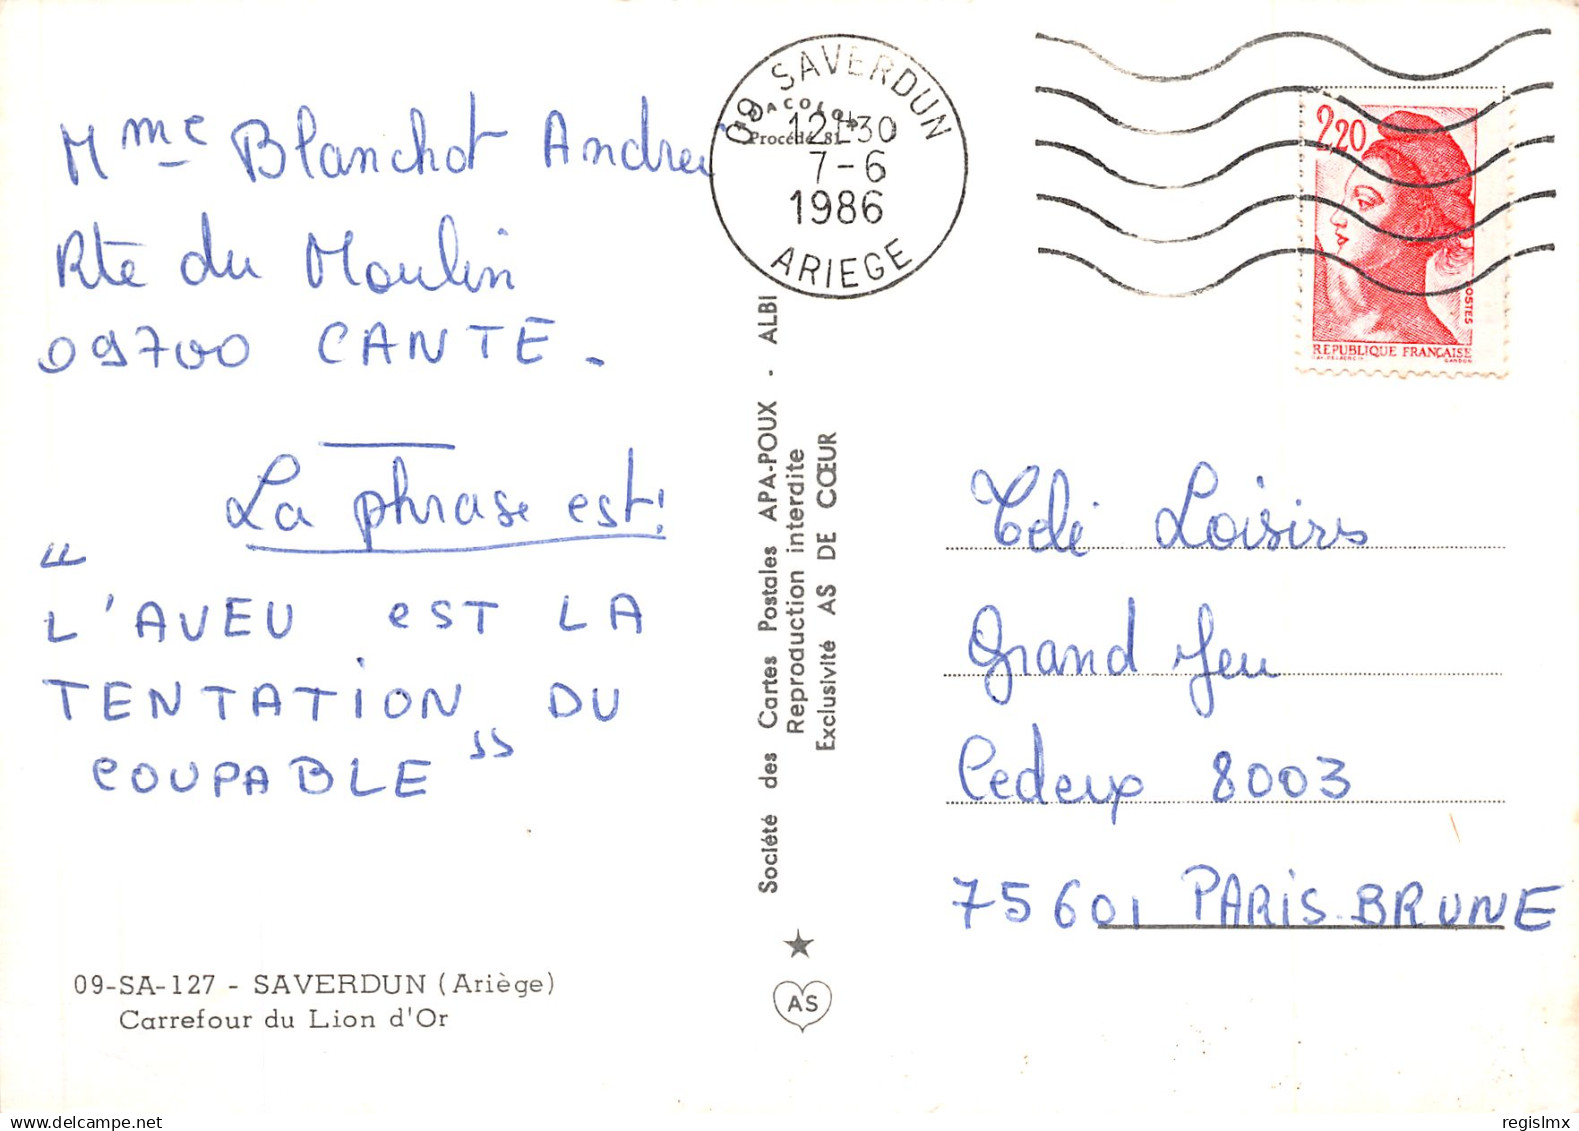 Mme Blanchot Andrei
Rte du Moulin
09700 CANTE.
La phrase est!
"
L'AVEU esT LA
TENTATION DU
COUPABLE "
09-SA-127 - SAVERDUN (Ariège)
Carrefour du Lion d'Or
09 SAVERDUN
Procédé 81
12H30
7-6
1986
ARIEGE
Société des Cartes Postales APA-POUX - ALBI
Reproduction interdite
Exclusivité AS DE CŒUR
AS
2,20
POSTES
REPUBLIQUE FRANÇAISE
GANDON
Télé Loisirs
Grand Jeu
Cedex 8003
75601 PARIS.BRUNE
regislmx